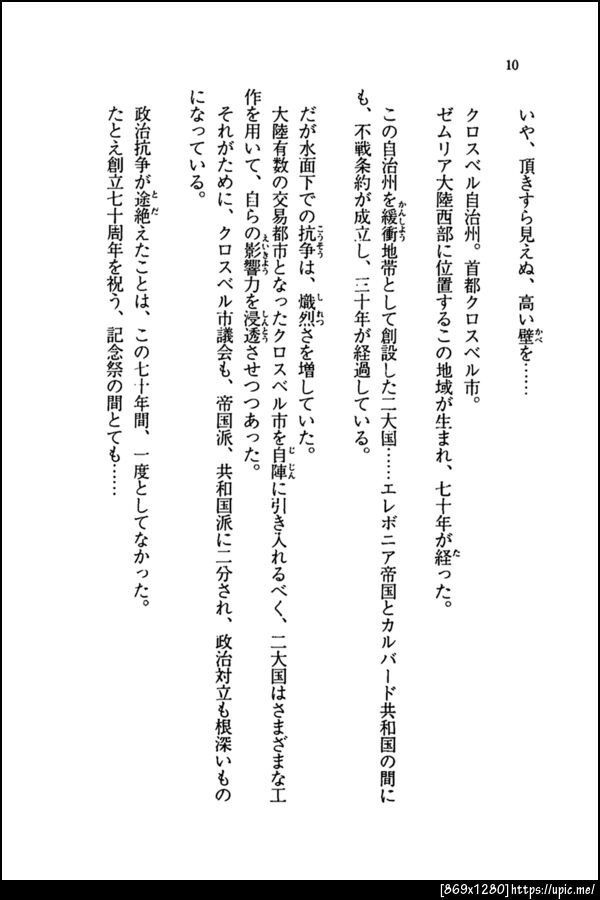 10
いや、頂きすら見えぬ、高い壁を……
クロスベル自治州。首都クロスベル市。
ゼムリア大陸西部に位置するこの地域が生まれ、七十年が経った。
この自治州を緩衝地帯として創設した二大国……エレボニア帝国とカルバード共和国の間に
も、不戦条約が成立し、三十年が経過している。
だが水面下での抗争は、熾烈さを増していた。
大陸有数の交易都市となったクロスベル市を自陣に引き入れるべく、二大国はさまざまな工
作を用いて、自らの影響力を浸透させつつあった。
それがために、クロスベル市議会も、帝国派、共和国派に二分され、政治対立も根深いもの
になっている。
政治抗争が途絶えたことは、この七十年間、一度としてなかった。
たとえ創立七十周年を祝う、記念祭の間とても……
[869x1280]https://upic.me/